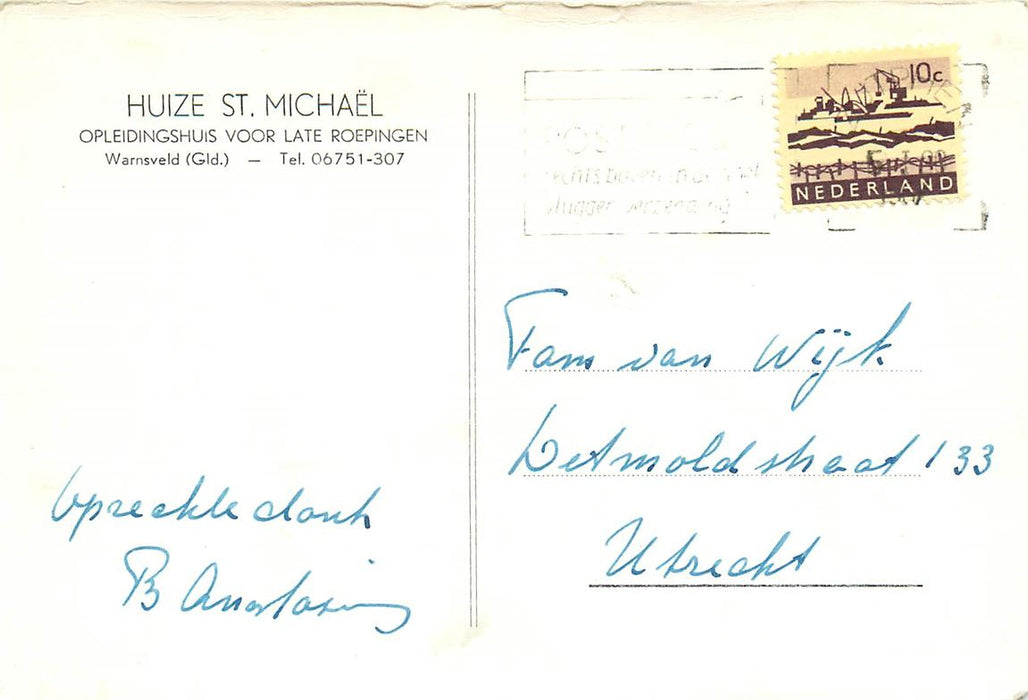 HUIZE ST. MICHAËL
OPLEIDINGSHUIS VOOR LATE ROEPINGEN
Warnsveld (Gld.) — Tel. 06751-307
10c
NEDERLAND
rechts boven
vlugger verzending
Fam van Wijk
Detmoldstraat 133
Utrecht
Oprechte dank
B Anastasius